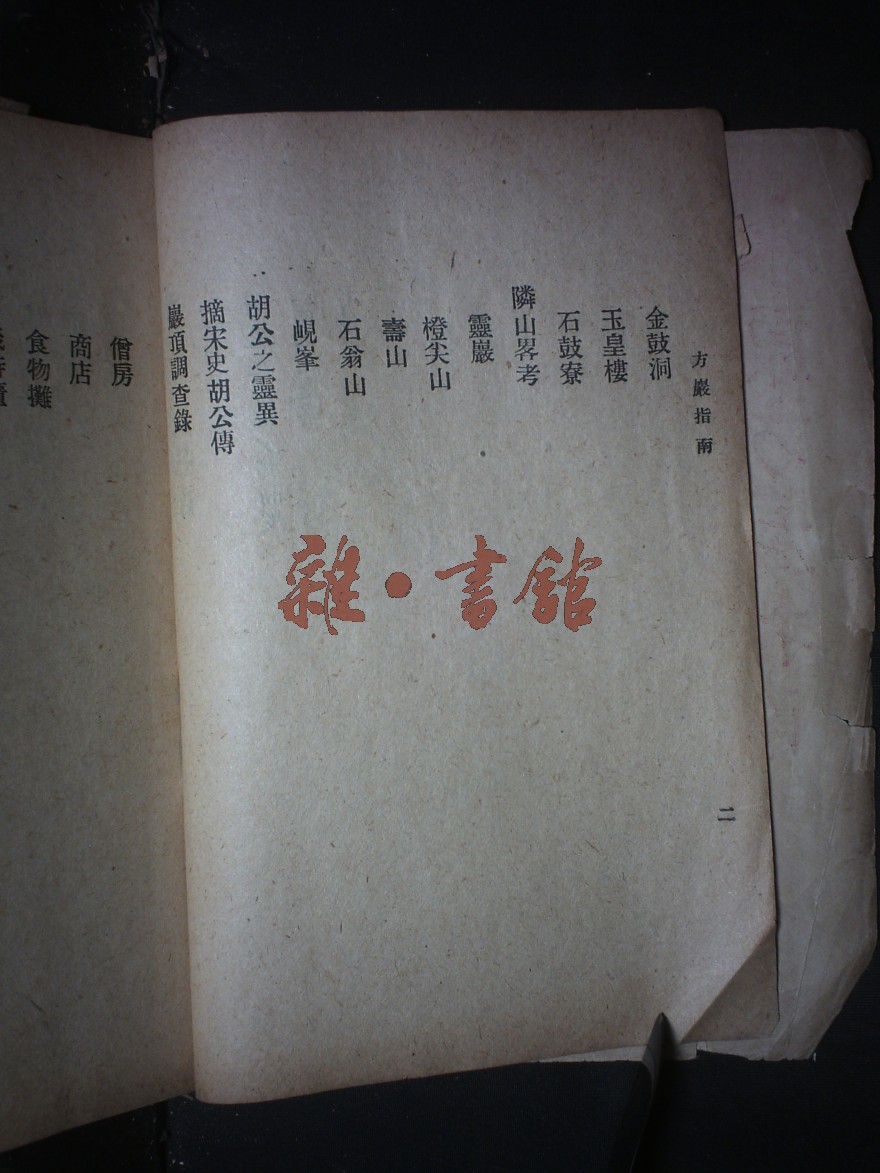 方巖指南
金鼓洞
玉皇樓
石鼓寮
隣山畧考
靈巖
橙尖山
壽山
石翁山
峴峯
胡公之靈異
摘宋史胡公傳
巖頂調查錄
二
僧房
商店
食物攤
雜·書館